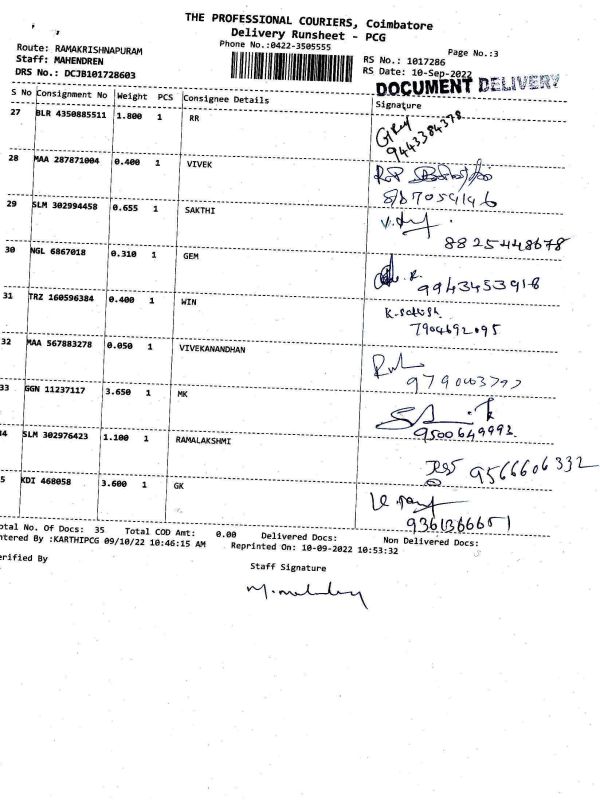 THE PROFESSIONAL COURIERS, Coimbatore
Delivery Runsheet - PCG
Phone No.:0422-3505555
Page No.:3
Route: RAMAKRISHNAPURAM
Staff: MAHENDREN
DRS No.: DCJB101728603
RS No.: 1017286
RS Date: 10-Sep-2022
DOCUMENT DELIVERY
S No Consignment No Weight PCS Consignee Details Signature
27 BLR 4350885511 1.800 1 RR
9443384378
28 MAA 287871004 0.400 1 VIVEK
8870591496
29 SLM 302994458 0.655 1 SAKTHI
8825448678
30 NGL 6867018 0.310 1 GEM
9943453918
31 TRZ 160596384 0.400 1 WIN
K. Satish
7904692095
32 MAA 567883278 0.050 1 VIVEKANANDHAN
33 GGN 11237117 3.650 1 MK
9500649993
34 SLM 302976423 1.100 1 RAMALAKSHMI
9566606332
5 KDI 468058 3.600 1 GK
9361366651
otal No. Of Docs: 35 Total COD Amt: 0.00 Delivered Docs: Non Delivered Docs:
ntered By :KARTHIPCG 09/10/22 10:46:15 AM Reprinted On: 10-09-2022 10:53:32
erified By
Staff Signature